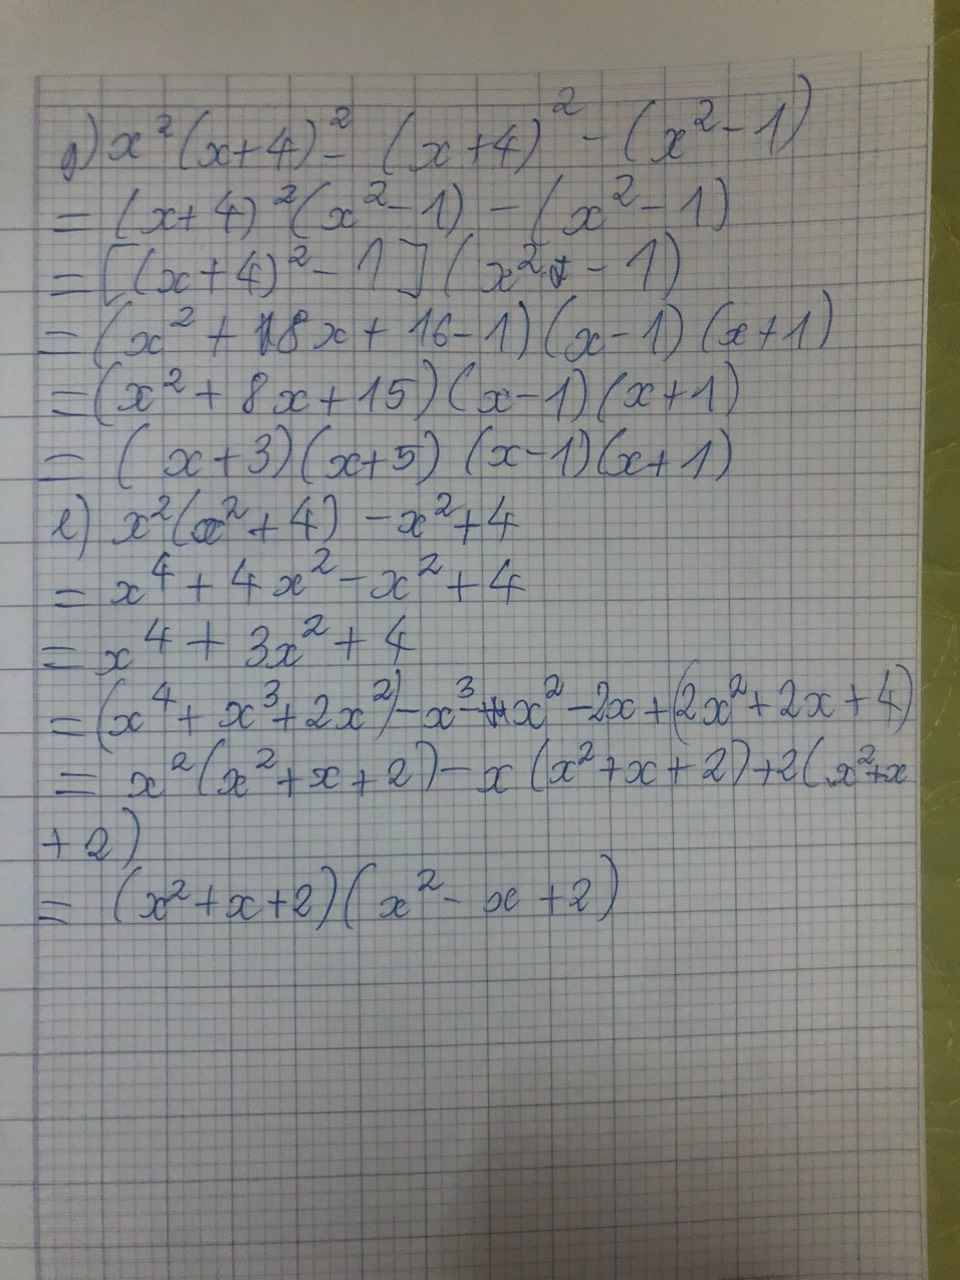 g) x²(x+4)² - (x+4)² - (x² - 1)
= (x+4)²(x² - 1) - (x² - 1)
= [(x+4)² - 1](x² - 1)
= (x² + 8x + 16 - 1)(x - 1)(x + 1)
= (x² + 8x + 15)(x - 1)(x + 1)
= (x + 3)(x + 5)(x - 1)(x + 1)
e) x²(x² + 4) - x² + 4
= x⁴ + 4x² - x² + 4
= x⁴ + 3x² + 4
= (x⁴ + x³ + 2x²) - x³ - x² - 2x + (2x² + 2x + 4)
= x²(x² + x + 2) - x(x² + x + 2) + 2(x² + x
+ 2)
= (x² + x + 2)(x² - x + 2)